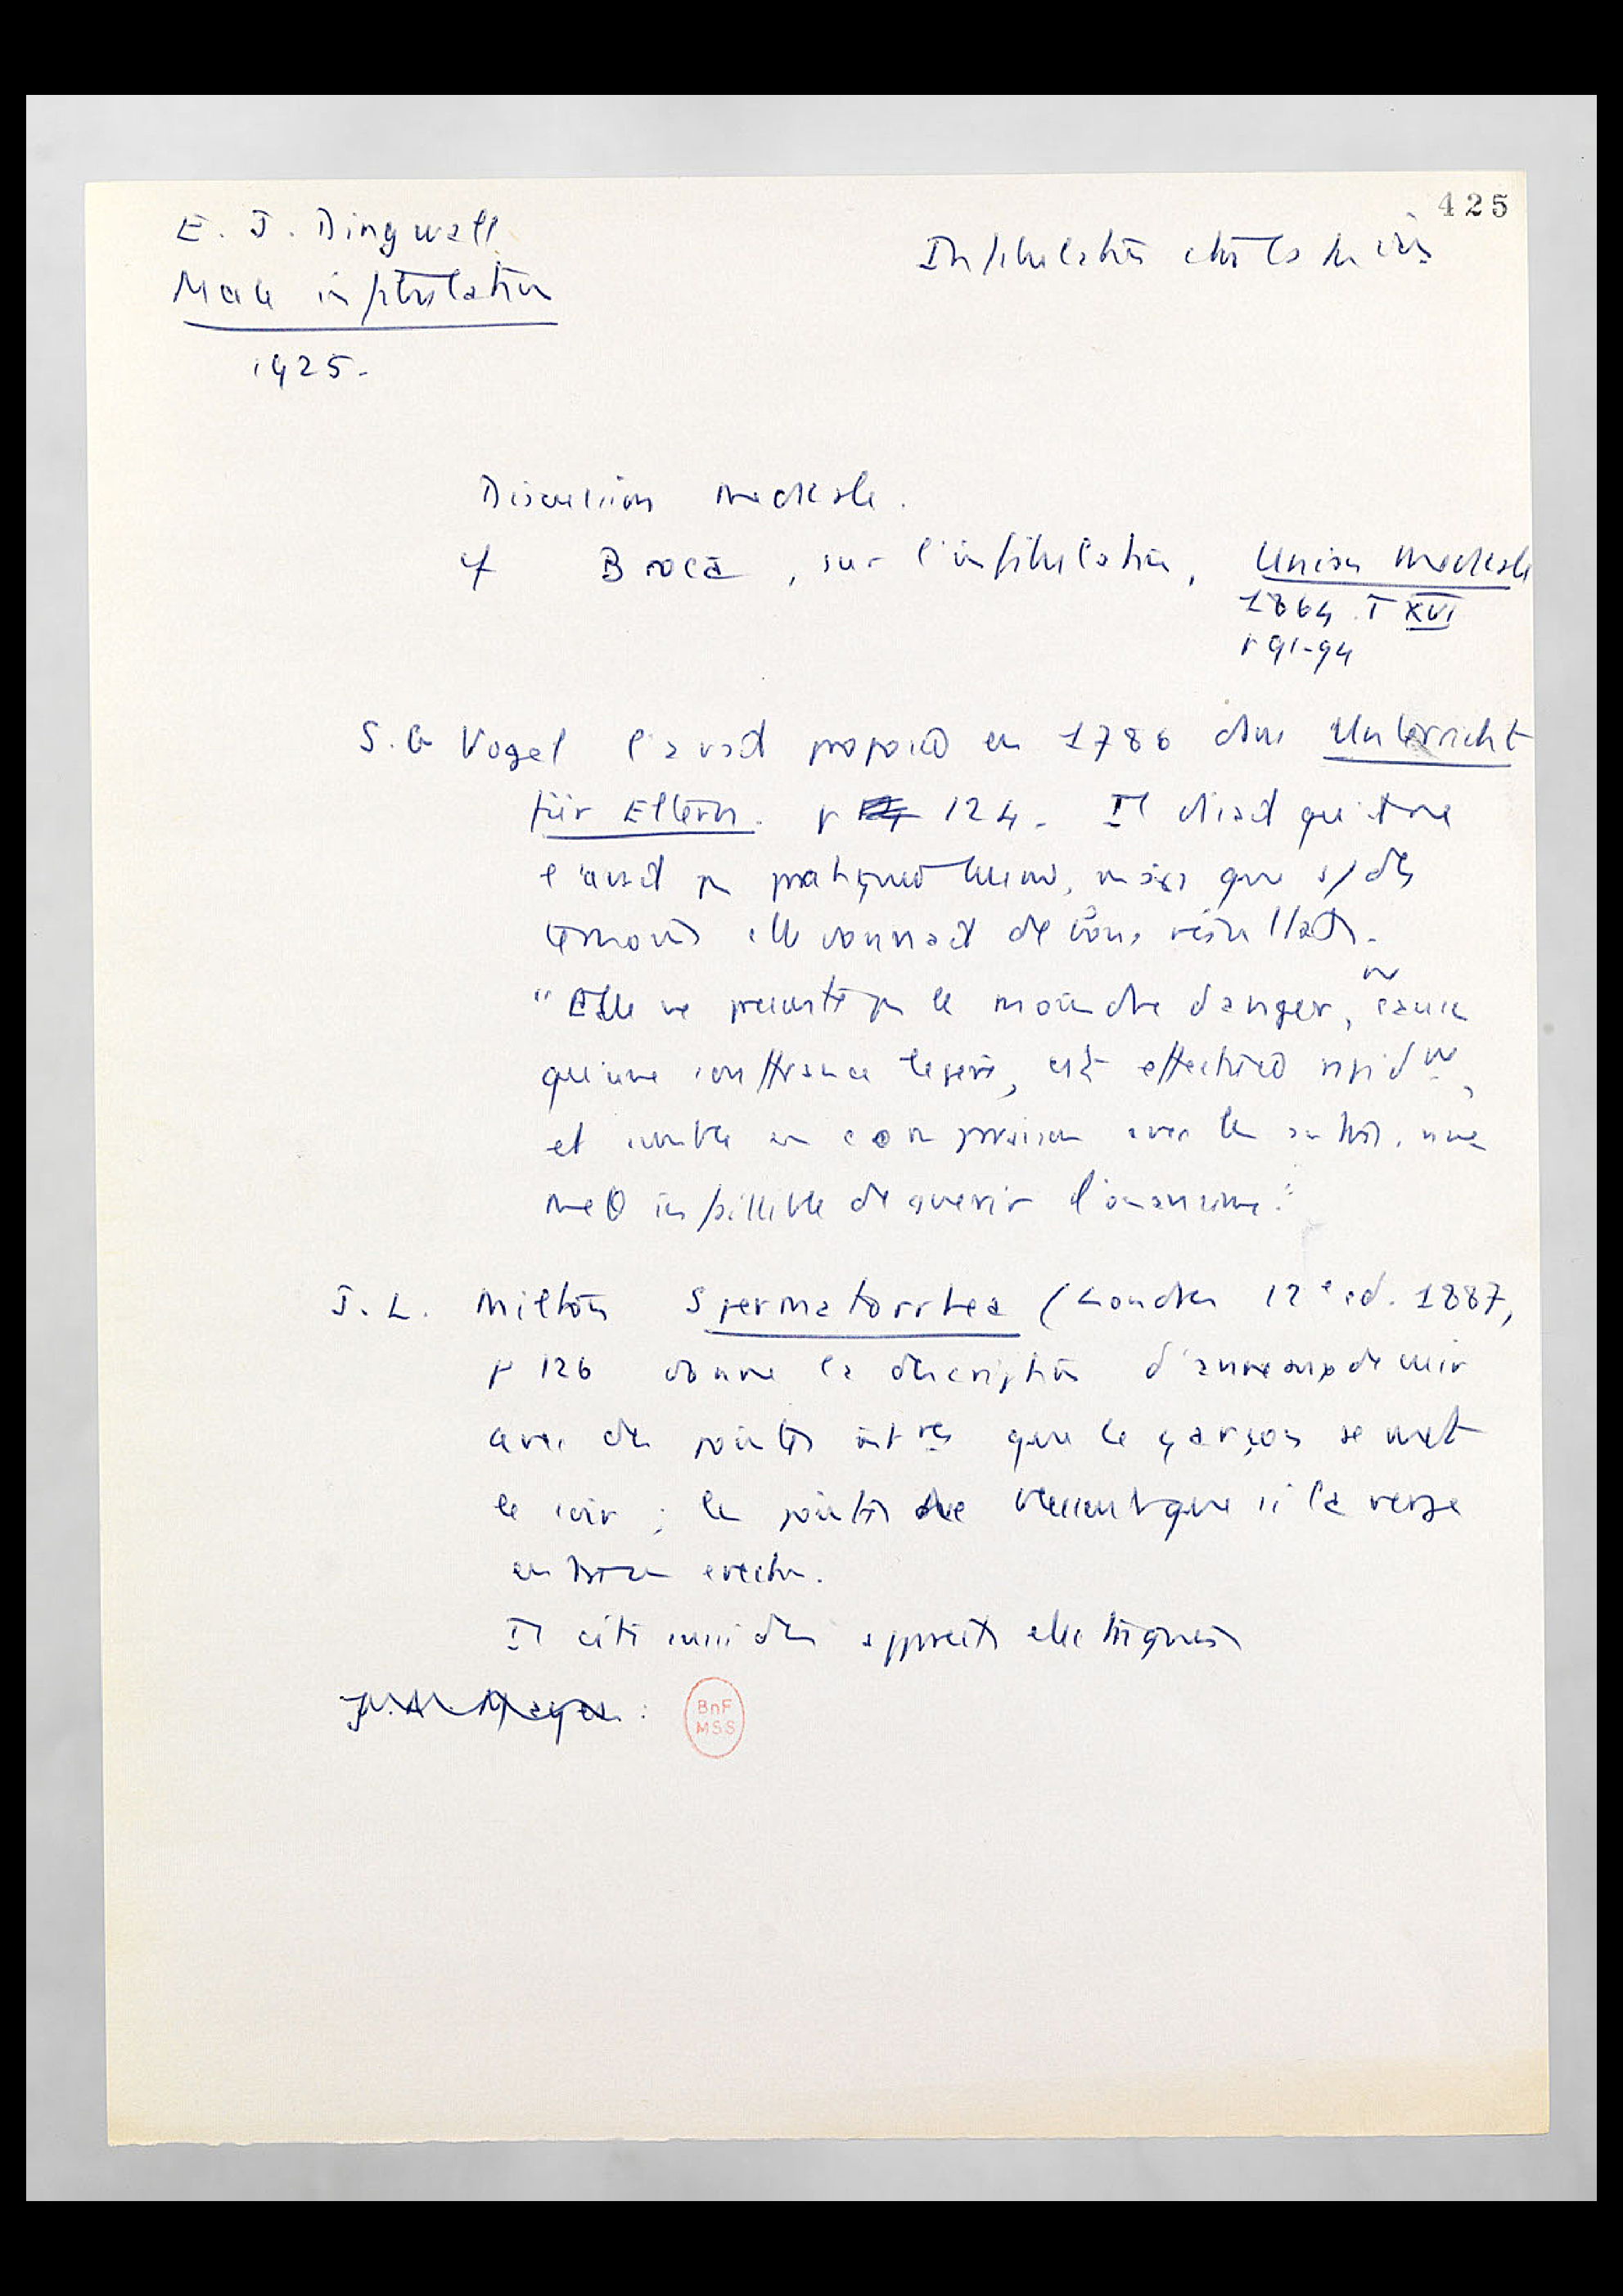 425
E. J. Dingwall
Male infibulation
1925.
Infibulation
Discussion medicale.
cf Broca, sur l'infibulation, Union Medicale
1864. T XVI
p 91-94
S. G Vogel l'avait proposé en 1786 dans Unterricht
für Eltern. p 124. Il disait qu'
l'avait pas pratiqué, mais que
elle donnait de bons résultats.
"Elle ne présente pas le moindre danger, ne cause
qu'une souffrance legere, est effectuée rapidnt,
et semble en comparaison avec les autres, une
infaillible de guerir l'onanisme."
J. L. Milton Spermatorrhea (Londres 12e ed. 1887,
p 126 donne la description d'anneaux de cuir
avec des pointes intres que le garçon se met
le soir ; les pointes ne blessent que si la verge
entre en erection.
Il cite aussi des appareils electriques
BnF
MSS